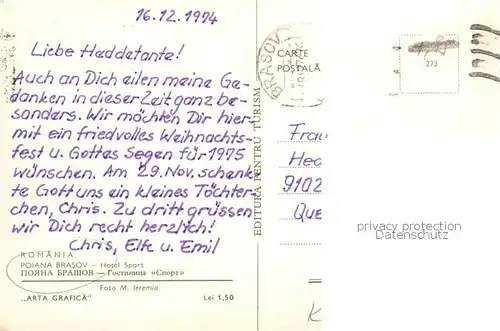 16.12.1974
Liebe Heddetante!
Auch an Dich eilen meine Ge-
danken in dieser Zeit ganz be-
sonders. Wir möchten Dir hier-
mit ein friedvolles Weihnachts-
fest u. Gottes Segen für 1975
wünschen. Am 29. Nov. schenk-
te Gott uns ein kleines Töchter-
chen, Chris. Zu dritt grüssen
wir Dich recht herzlich!
Chris, Elfe u. Emil
ROMÂNIA
POIANA BRAŞOV — Hotel Sport
ПОЯНА БРАШОВ — Гостиница «Спорт»
Foto M. Ieremia
„ARTA GRAFICĂ"
Lei 1,50
EDITURA PENTRU TURISM
BRASOV
CARTE
POSTALĂ
273
Frau
Hed
9102
Que
K
privacy protection
Datenschutz